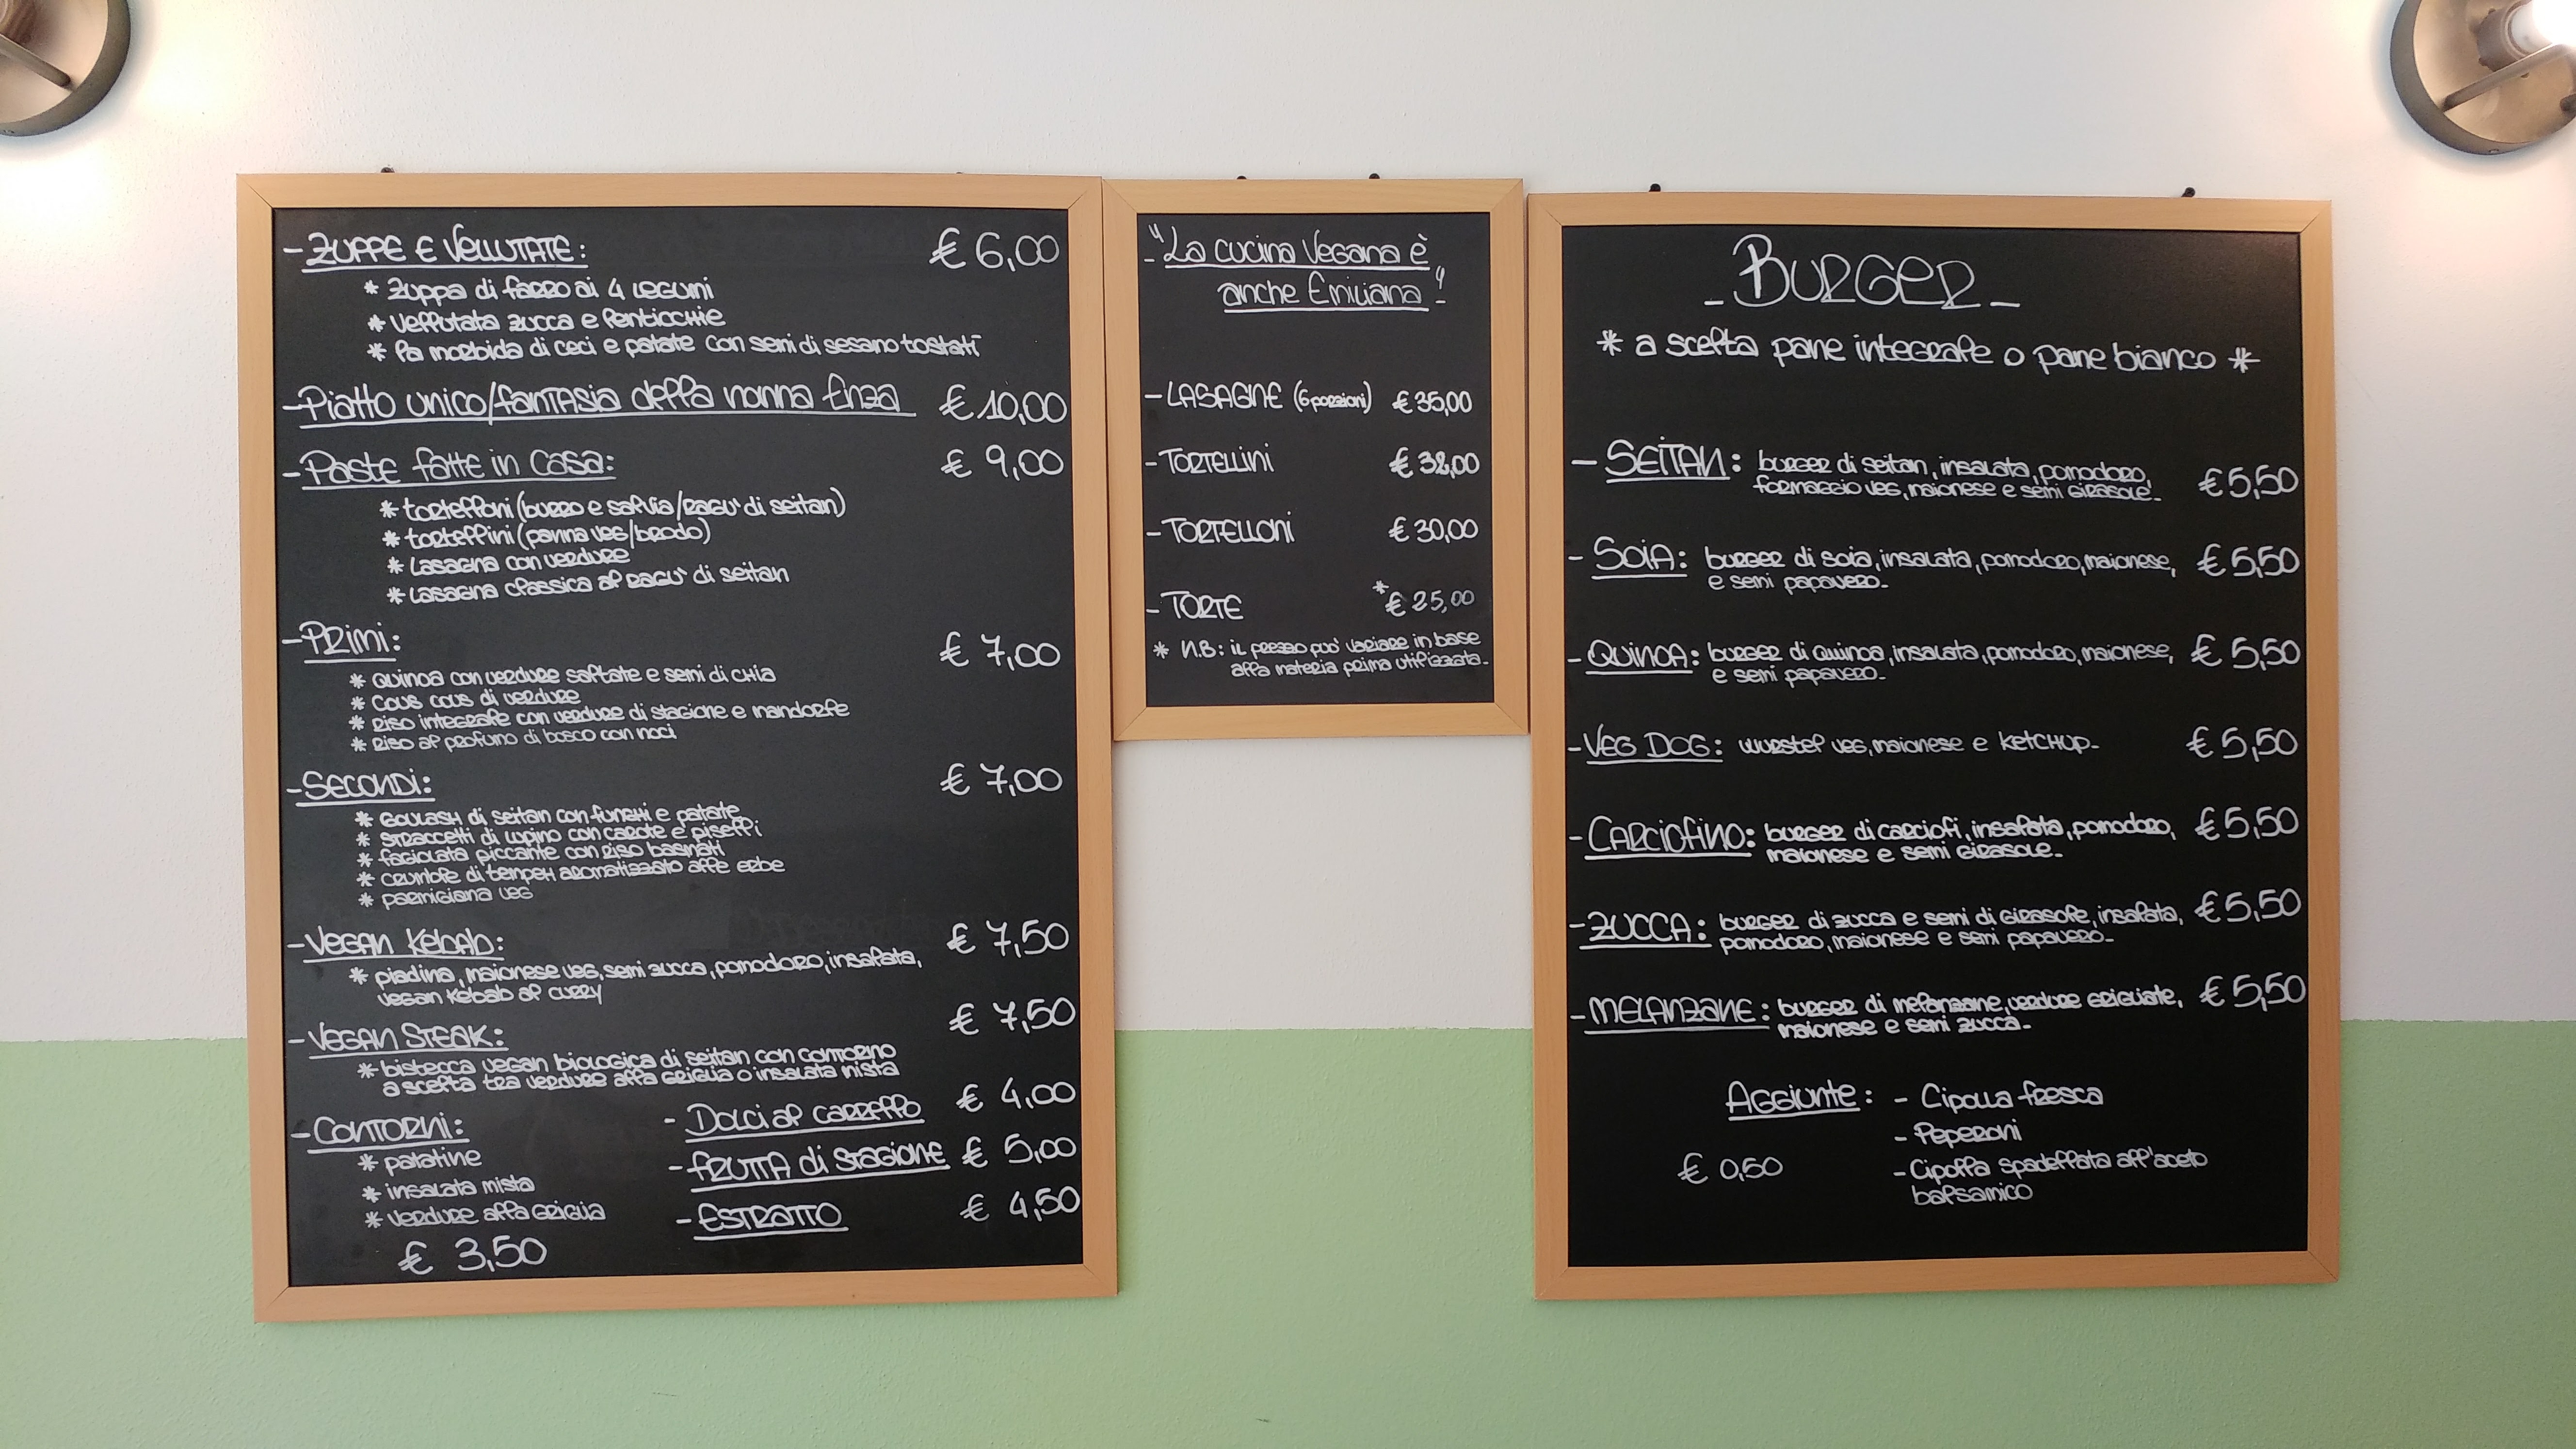 - ZUPPE E VELLUTATE: € 6,00
* Zuppa di farro ai 4 legumi
* vellutata zucca e lenticchie
* la morbida di ceci e patate con semi di sesamo tostati
- Piatto unico/fantasia della nonna Enza € 10,00
- Paste fatte in casa: € 9,00
* tortelloni (burro e salvia/ragu' di seitan)
* tortellini (panna veg/brodo)
* lasagna con verdure
* lasagna classica al ragu' di seitan
- Primi: € 7,00
* quinoa con verdure saltate e semi di chia
* cous cous di verdure
* riso integrale con verdure di stagione e mandorle
* riso al profumo di bosco con noci
- Secondi: € 7,00
* goulash di seitan con funghi e patate
* straccetti di lupino con carote e piselli
* fagiolata piccante con riso basmati
* crumble di tempeh aromatizzato alle erbe
* parmigiana veg
- Vegan Kebab: € 7,50
* piadina, maionese veg, semi zucca, pomodoro, insalata,
vegan kebab al curry
- Vegan Steak: € 7,50
* bistecca vegan biologica di seitan con contorno
a scelta tra verdure alla griglia o insalata mista
- Contorni:
* patatine
* insalata mista
* verdure alla griglia
€ 3,50
- Dolci al carrello € 4,00
- frutta di stagione € 5,00
- Estratto € 4,50
- "La cucina vegana è
anche Emiliana" -
- LASAGNE (6 porzioni) € 35,00
- TORTELLINI € 38,00
- TORTELLONI € 30,00
- TORTE * € 25,00
* N.B: il prezzo puo' variare in base
alla materia prima utilizzata.
- BURGER -
* a scelta pane integrale o pane bianco *
- SEITAN: burger di seitan, insalata, pomodoro, € 5,50
formaggio veg, maionese e semi girasole.
- SOIA: burger di soia, insalata, pomodoro, maionese, € 5,50
e semi papavero.
- QUINOA: burger di quinoa, insalata, pomodoro, maionese, € 5,50
e semi papavero.
- VEG DOG: wurstel veg, maionese e ketchup. € 5,50
- CARCIOFINO: burger di carciofi, insalata, pomodoro, € 5,50
maionese e semi girasole.
- ZUCCA: burger di zucca e semi di girasole, insalata, € 5,50
pomodoro, maionese e semi papavero.
- MELANZANE: burger di melanzane, verdure grigliate, € 5,50
maionese e semi zucca.
Aggiunte: - Cipolla fresca
- Peperoni
€ 0,50 - Cipolla spadellata all'aceto
balsamico